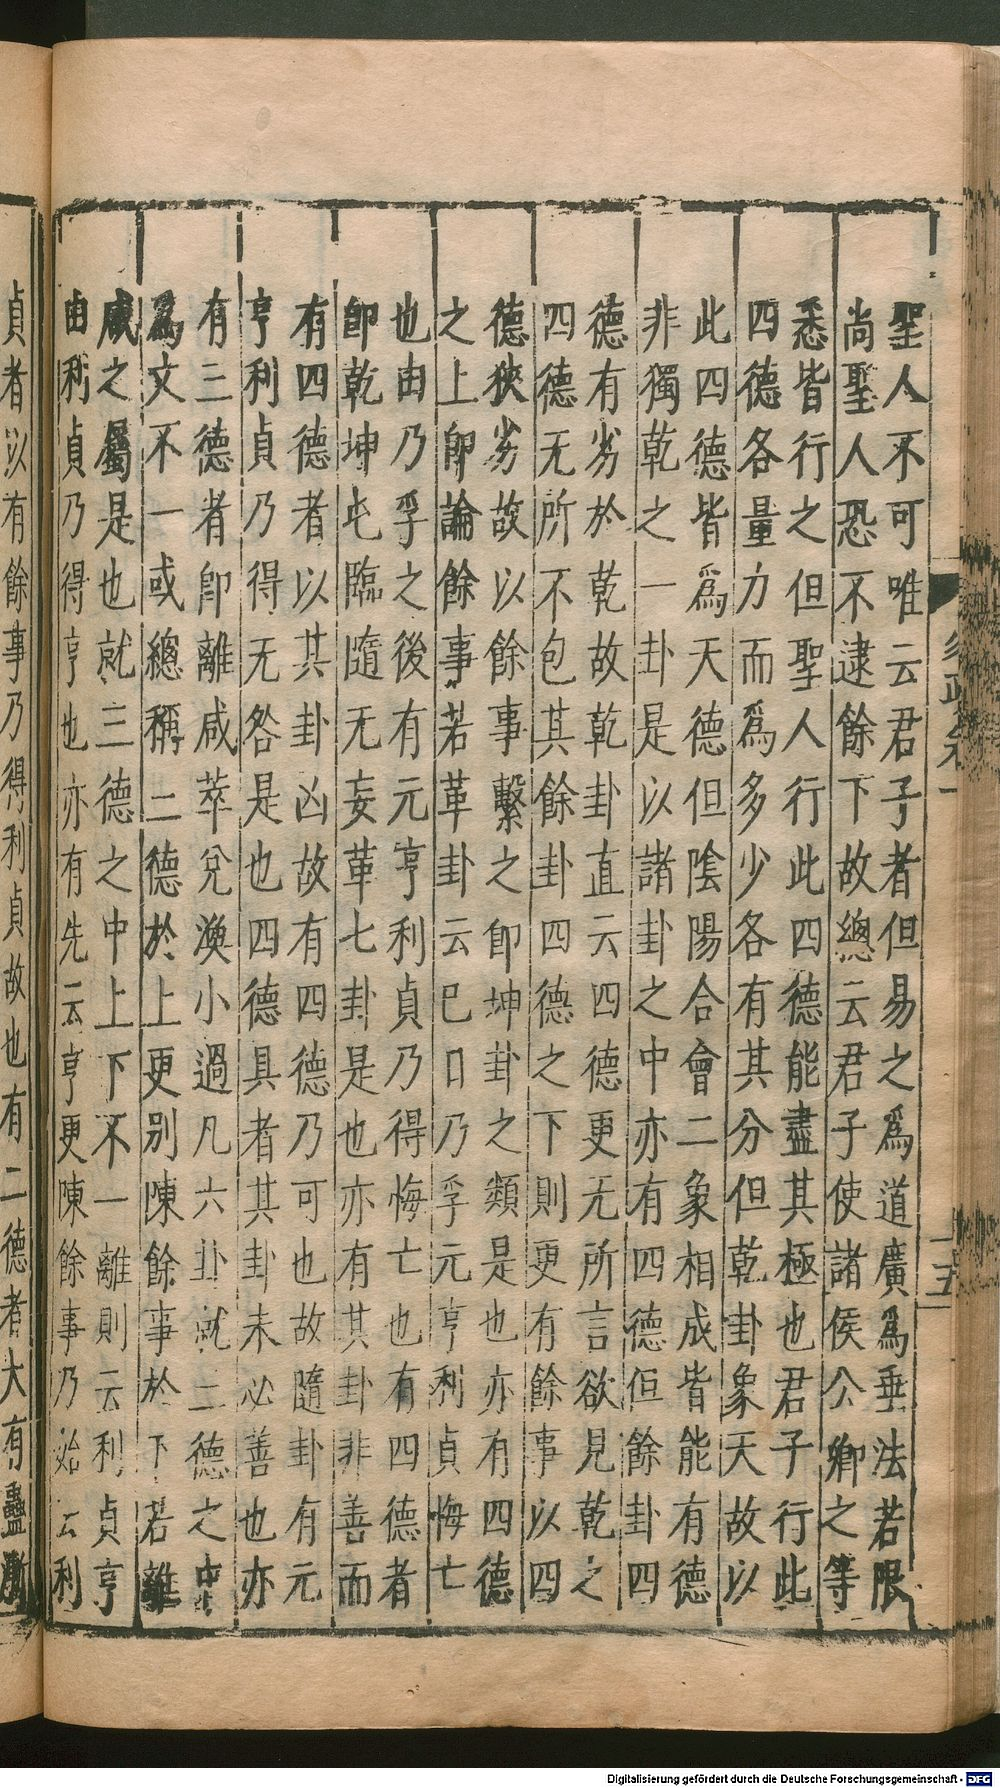 聖人不可唯云君子者但易之爲道廣爲垂法若限
尚聖人恐不逮餘下故總云君子使諸侯公卿之等
悉皆行之但聖人行此四德能盡其極也君子行此
四德各量力而爲多少各有其分但乾卦象天故以
此四德皆爲天德但陰陽合會二象相成皆能有德
非獨乾之一卦是以諸卦之中亦有四德但餘卦四
德有劣於乾故乾卦直云四德更无所言欲見乾之
四德无所不包其餘卦四德之下則更有餘事以四
德狹劣故以餘事繫之即坤卦之類是也亦有四德
之上即論餘事若革卦云巳日乃孚元亨利貞悔亡
也由乃孚之後有元亨利貞乃得悔亡也有四德者
即乾坤屯臨隨无妄革七卦是也亦有其卦非善而
有四德者以其卦凶故有四德乃可也故隨卦有元
亨利貞乃得无咎是也四德具者其卦未必善也亦
有三德者即離咸萃兌渙小過凡六卦就三德之中
爲文不一或總稱二德於上更別陳餘事於下若離
咸之屬是也就三德之中上下不一離則云利貞亨
由利貞乃得亨也亦有先云亨更陳餘事乃始云利
貞者以有餘事乃得利貞故也有二德者大有蠱漸
十五
Digitalisierung gefördert durch die Deutsche Forschungsgemeinschaft - DFG